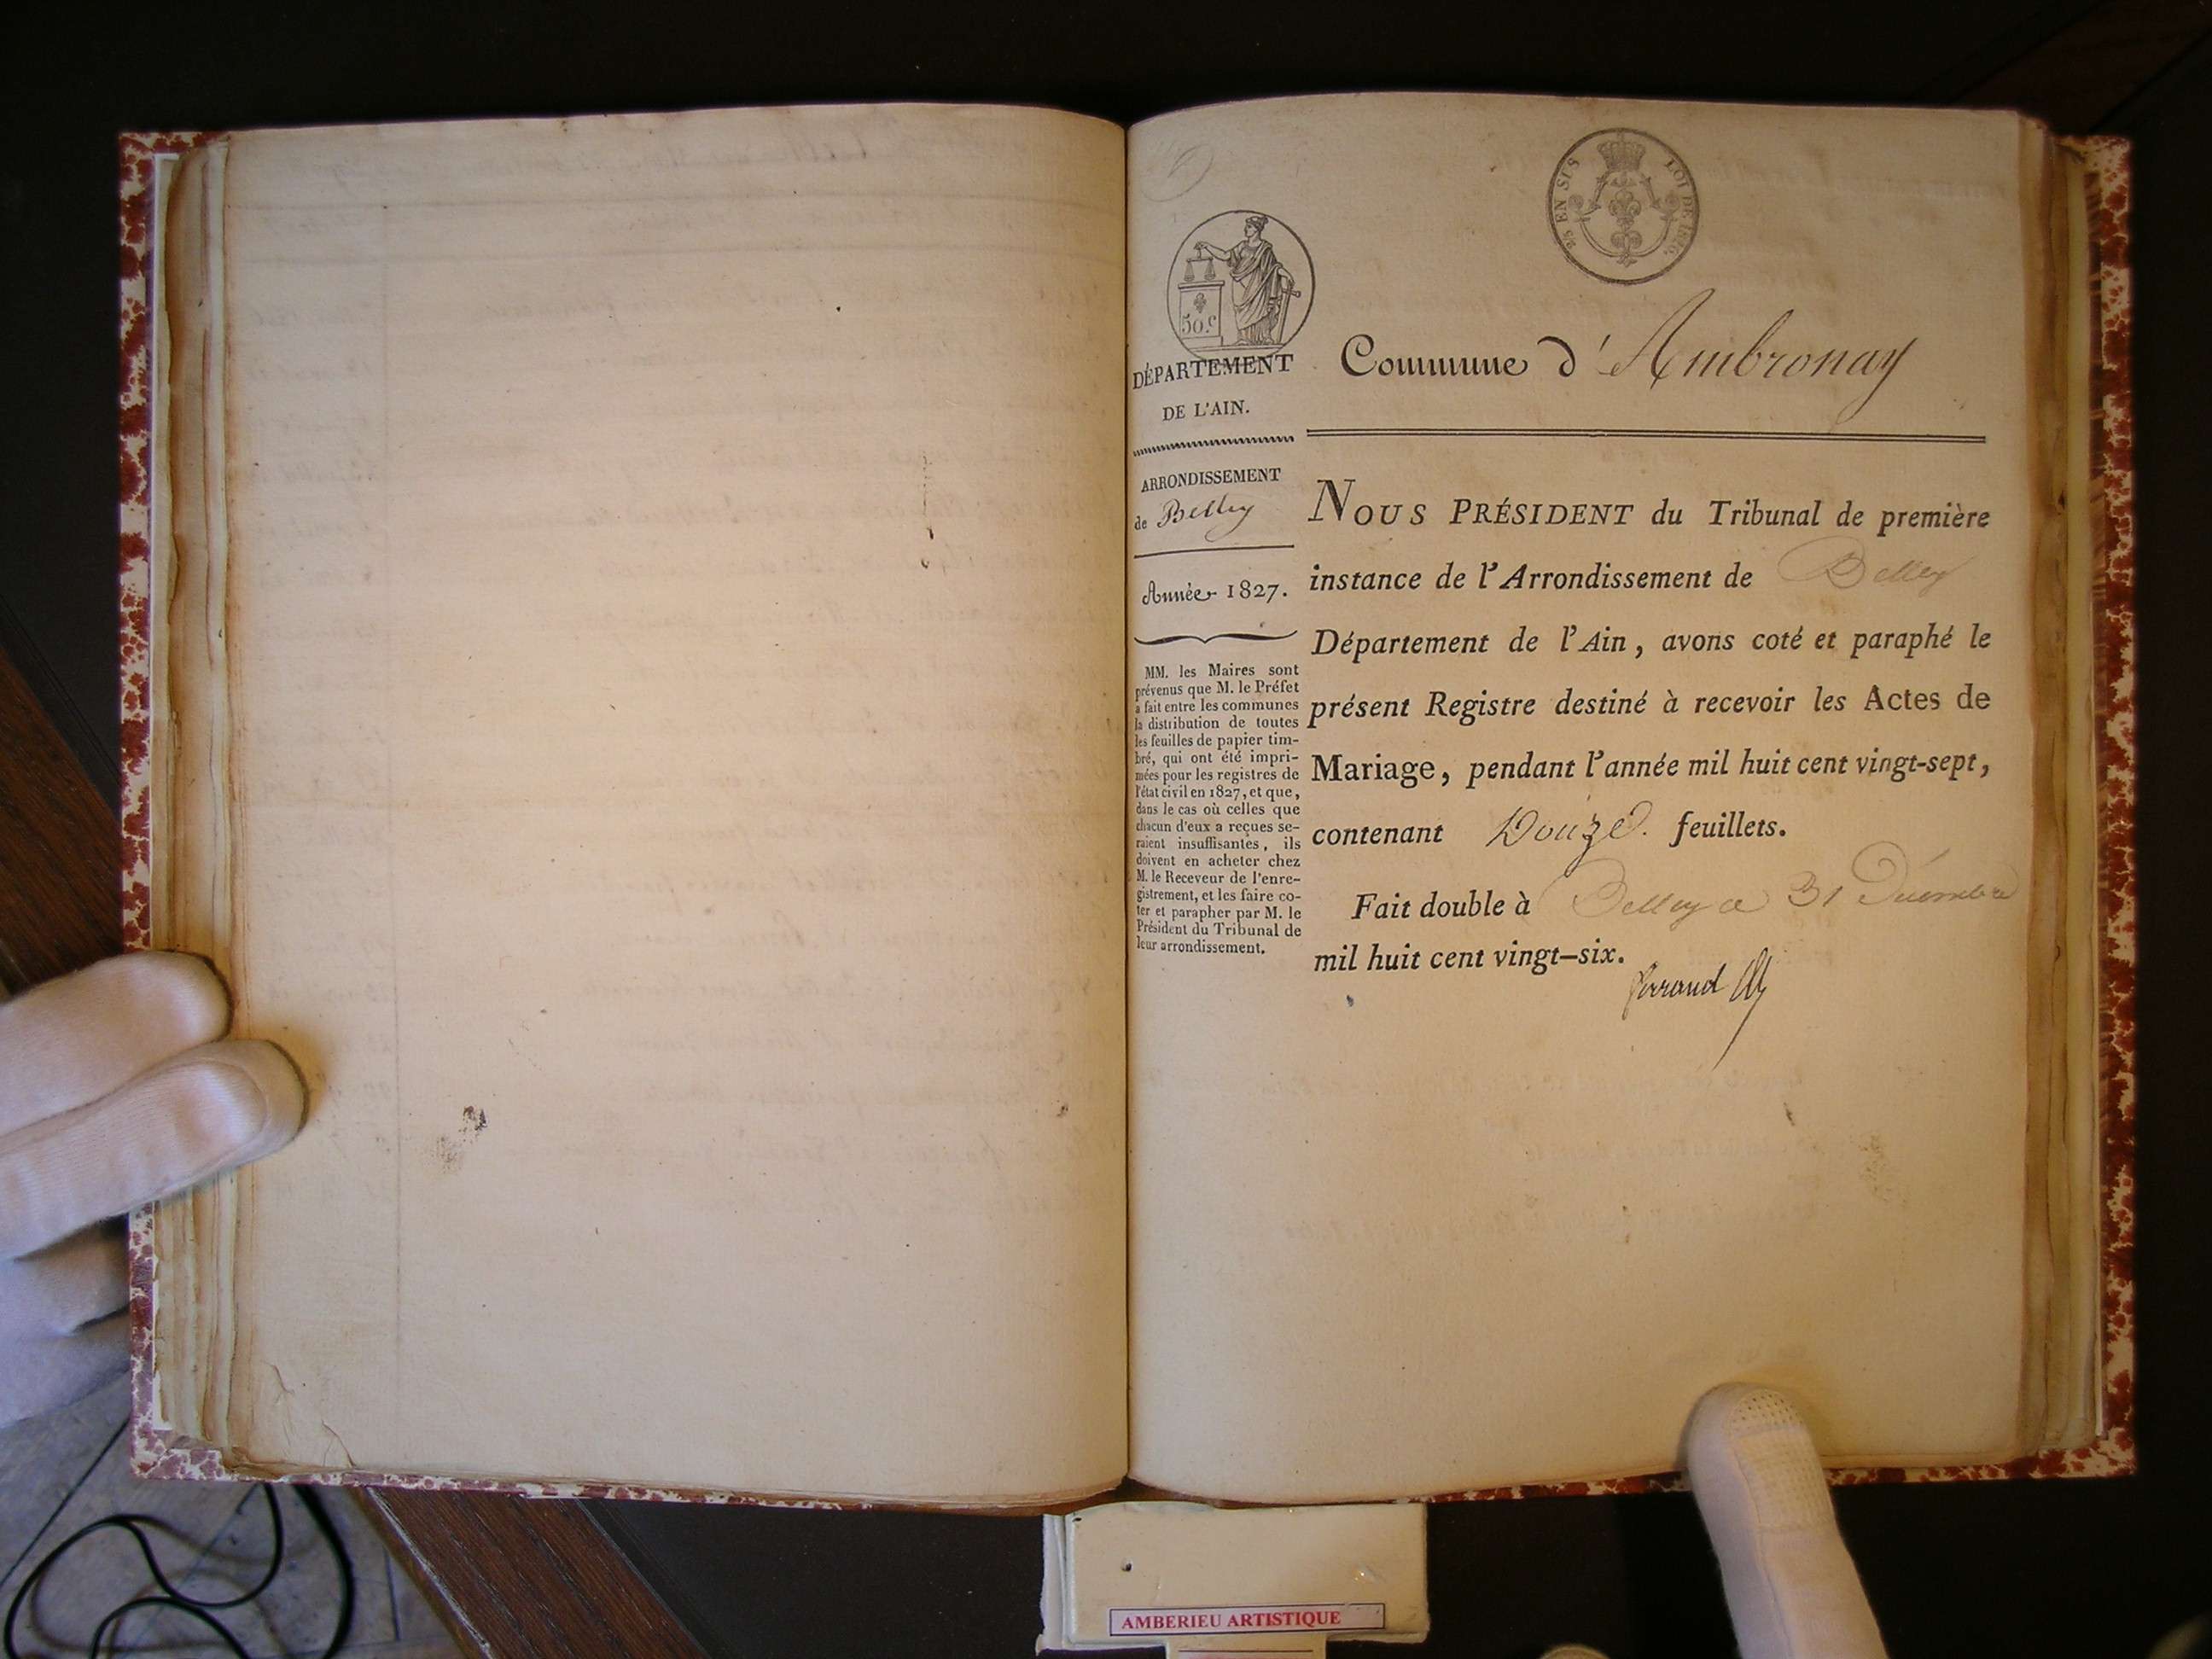 25 EN SUS
LOI DE 1816.
50.c
DÉPARTEMENT
DE L'AIN.
ARRONDISSEMENT
de Belley
Année 1827.
MM. les Maires sont
prévenus que M. le Préfet
a fait entre les communes
la distribution de toutes
les feuilles de papier tim-
bré, qui ont été impri-
mées pour les registres de
l'état civil en 1827, et que,
dans le cas où celles que
chacun d'eux a reçues se-
raient insuffisantes, ils
doivent en acheter chez
M. le Receveur de l'enre-
gistrement, et les faire co-
ter et parapher par M. le
Président du Tribunal de
leur arrondissement.
Commune d'Ambronay
NOUS PRÉSIDENT du Tribunal de première
instance de l'Arrondissement de Belley
Département de l'Ain, avons coté et paraphé le
présent Registre destiné à recevoir les Actes de
Mariage, pendant l'année mil huit cent vingt-sept,
contenant Douze. feuillets.
Fait double à Belley ce 31 Décembre
mil huit cent vingt-six.
AMBERIEU ARTISTIQUE